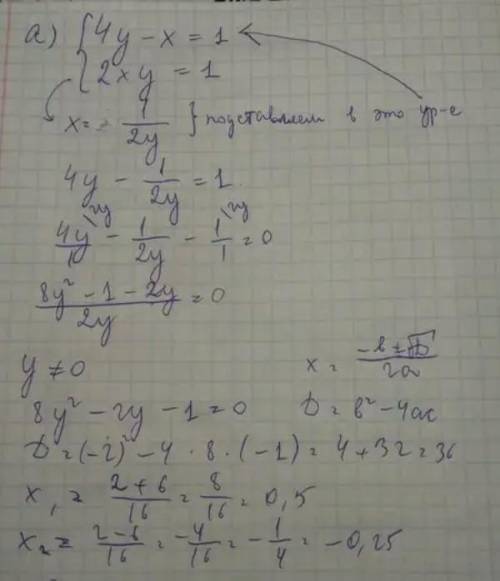 а) { 4y - x = 1
{ 2xy = 1
x = 1/2y } подставляем в это ур-е
4y - 1/2y = 1
4y/1 \2y - 1/2y - 1/1 \2y = 0
8y² - 1 - 2y / 2y = 0
y ≠ 0
x = -b ± √D / 2a
8y² - 2y - 1 = 0
D = b² - 4ac
D = (-2)² - 4 · 8 · (-1) = 4 + 32 = 36
x₁ = 2+6/16 = 8/16 = 0,5
x₂ = 2-6/16 = -4/16 = -1/4 = -0,25